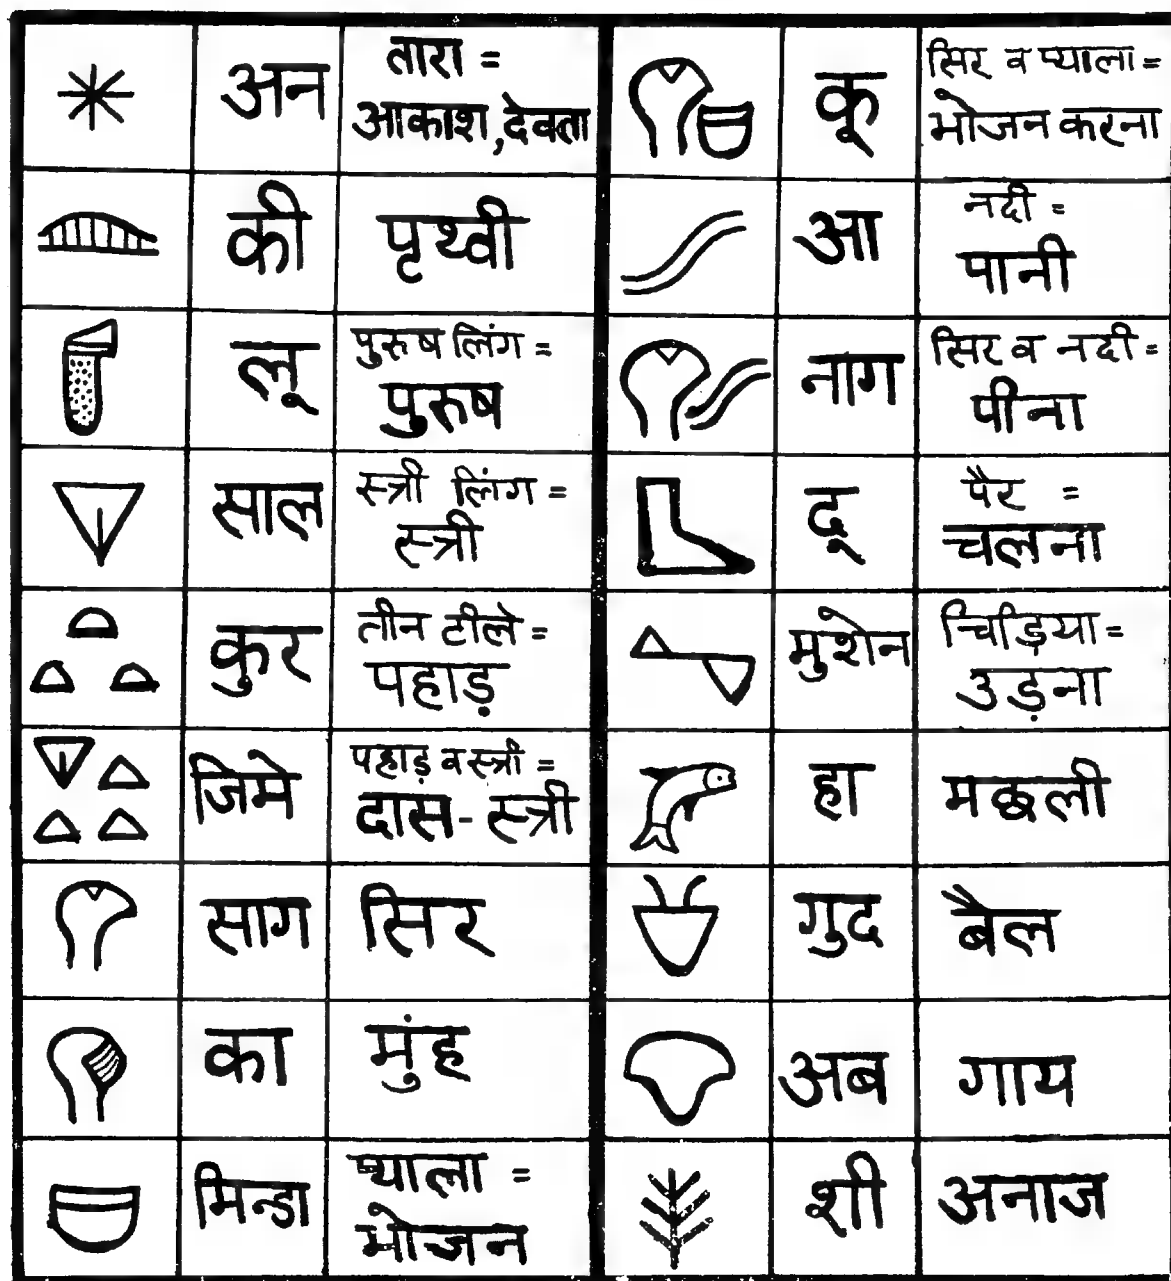 अन
तारा =
आकाश, देवता
की
पृथ्वी
लू
पुरुष लिंग =
पुरुष
साल
स्त्री लिंग =
स्त्री
कुर
तीन टीले =
पहाड़
जिमे
पहाड़ व स्त्री =
दास - स्त्री
साग
सिर
का
मुंह
मिन्डा
प्याला =
भोजन
कू
सिर व प्याला =
भोजन करना
आ
नदी =
पानी
नाग
सिर व नदी =
पीना
दू
पैर =
चलना
मुशेन
चिड़िया =
उड़ना
हा
मछली
गुद
बैल
अब
गाय
शी
अनाज